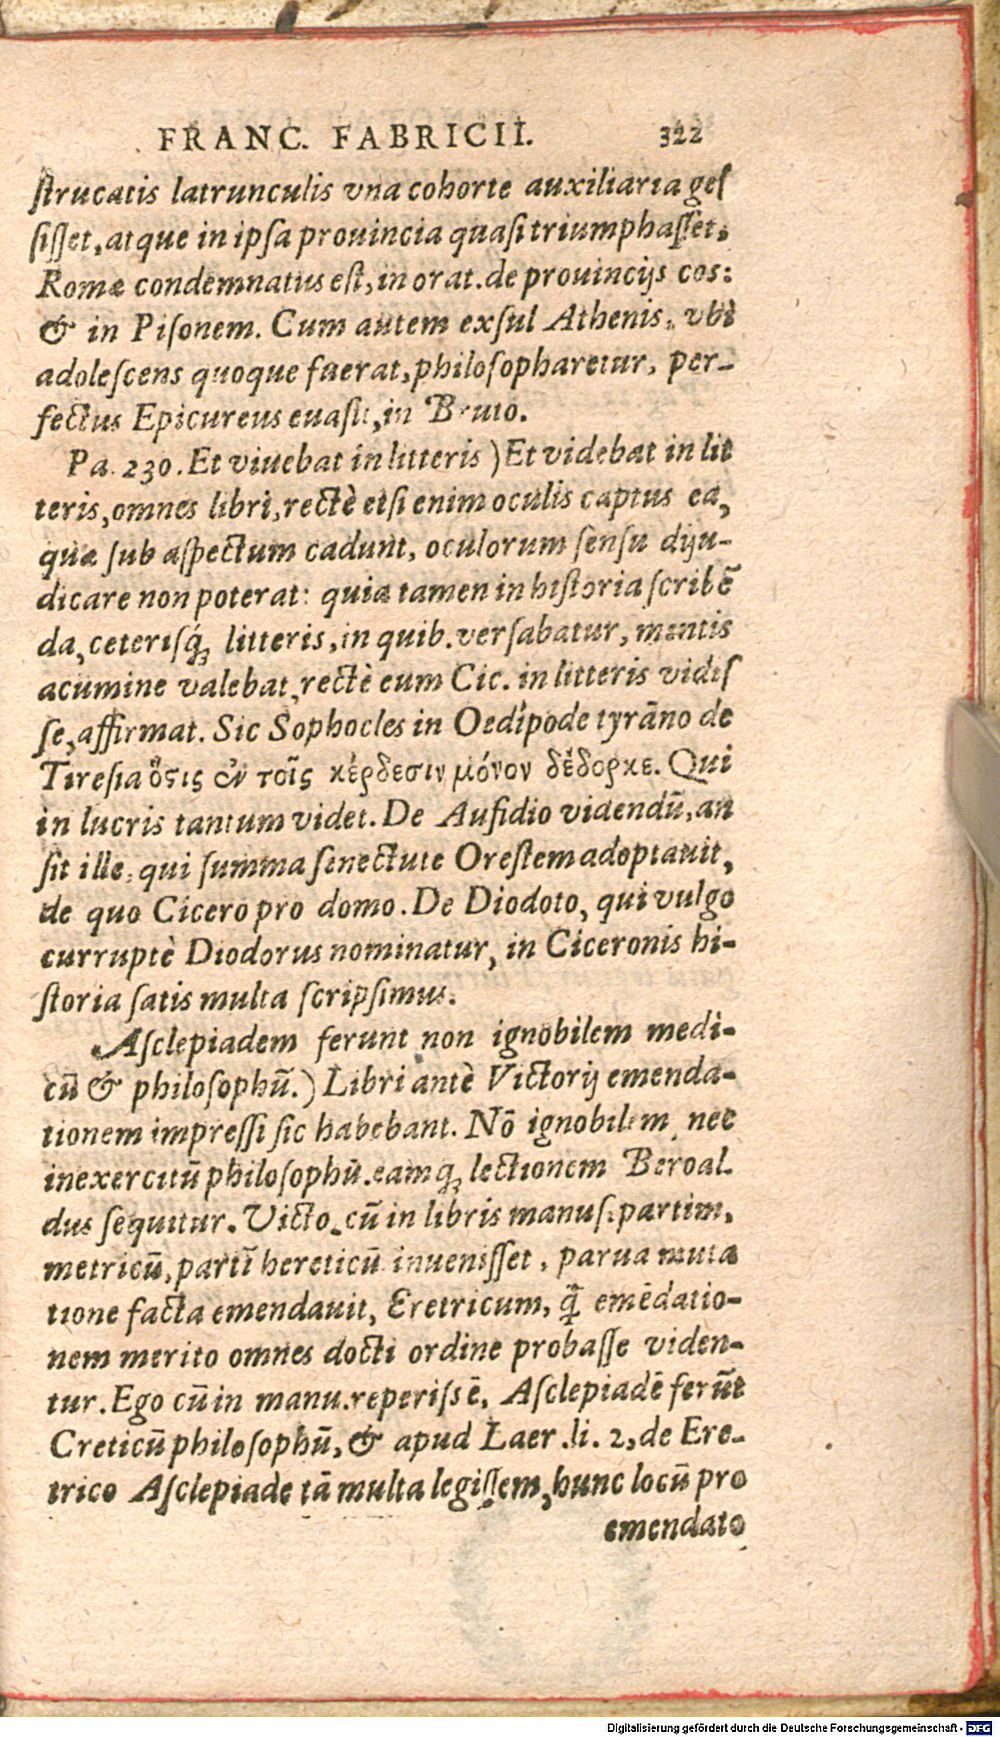 FRANC. FABRICII. 322
ſtrucatis latrunculis vna cohorte auxiliaria geſ
ſiſſet, atque in ipſa prouincia quaſi triumphaſſet,
Romæ condemnatus eſt, in orat. de prouincijs cos:
& in Piſonem. Cum autem exſul Athenis, vbi
adoleſcens quoque fuerat, philoſopharetur, per-
fectus Epicureus euaſit, in Bruto.
Pa. 230. Et viuebat in litteris) Et videbat in lit
teris, omnes libri, rectè etſi enim oculis captus ea,
quæ ſub aſpectum cadunt, oculorum ſenſu diju-
dicare non poterat: quia tamen in hiſtoria ſcribē
da, ceteriſq́; litteris, in quib. verſabatur, mentis
acumine valebat, rectè eum Cic. in litteris vidiſ
ſe, affirmat. Sic Sophocles in Oedipode tyrāno de
Tireſia ὅςις ἐν τοῖς κέρδεσιν μόνον δέδορκε. Qui
in lucris tantum videt. De Aufidio videndū, an
ſit ille, qui ſumma ſenectute Oreſtem adoptauit,
de quo Cicero pro domo. De Diodoto, qui vulgo
curruptè Diodorus nominatur, in Ciceronis hi-
ſtoria ſatis multa ſcripſimus.
Aſclepiadem ferunt non ignobilem medi-
cū & philoſophū.) Libri antè Victorij emenda-
tionem impreſſi ſic habebant. Nō ignobilem, nec
inexercitū philoſophū. eamq́; lectionem Beroal
dus ſequitur. Victo. cū in libris manuſ. partim,
metricū, partī hereticū inueniſſet, parua muta
tione facta emendauit, Eretricum, q̄ emēdatio-
nem merito omnes docti ordine probaſſe viden-
tur. Ego cū in manu. reperiſsē, Aſclepiadē ferūt
Creticū philoſophū, & apud Laer. li. 2, de Ere-
trico Aſclepiade tā multa legiſſem, hunc locū pro
emendato
Digitalisierung gefördert durch die Deutsche Forschungsgemeinschaft - DFG